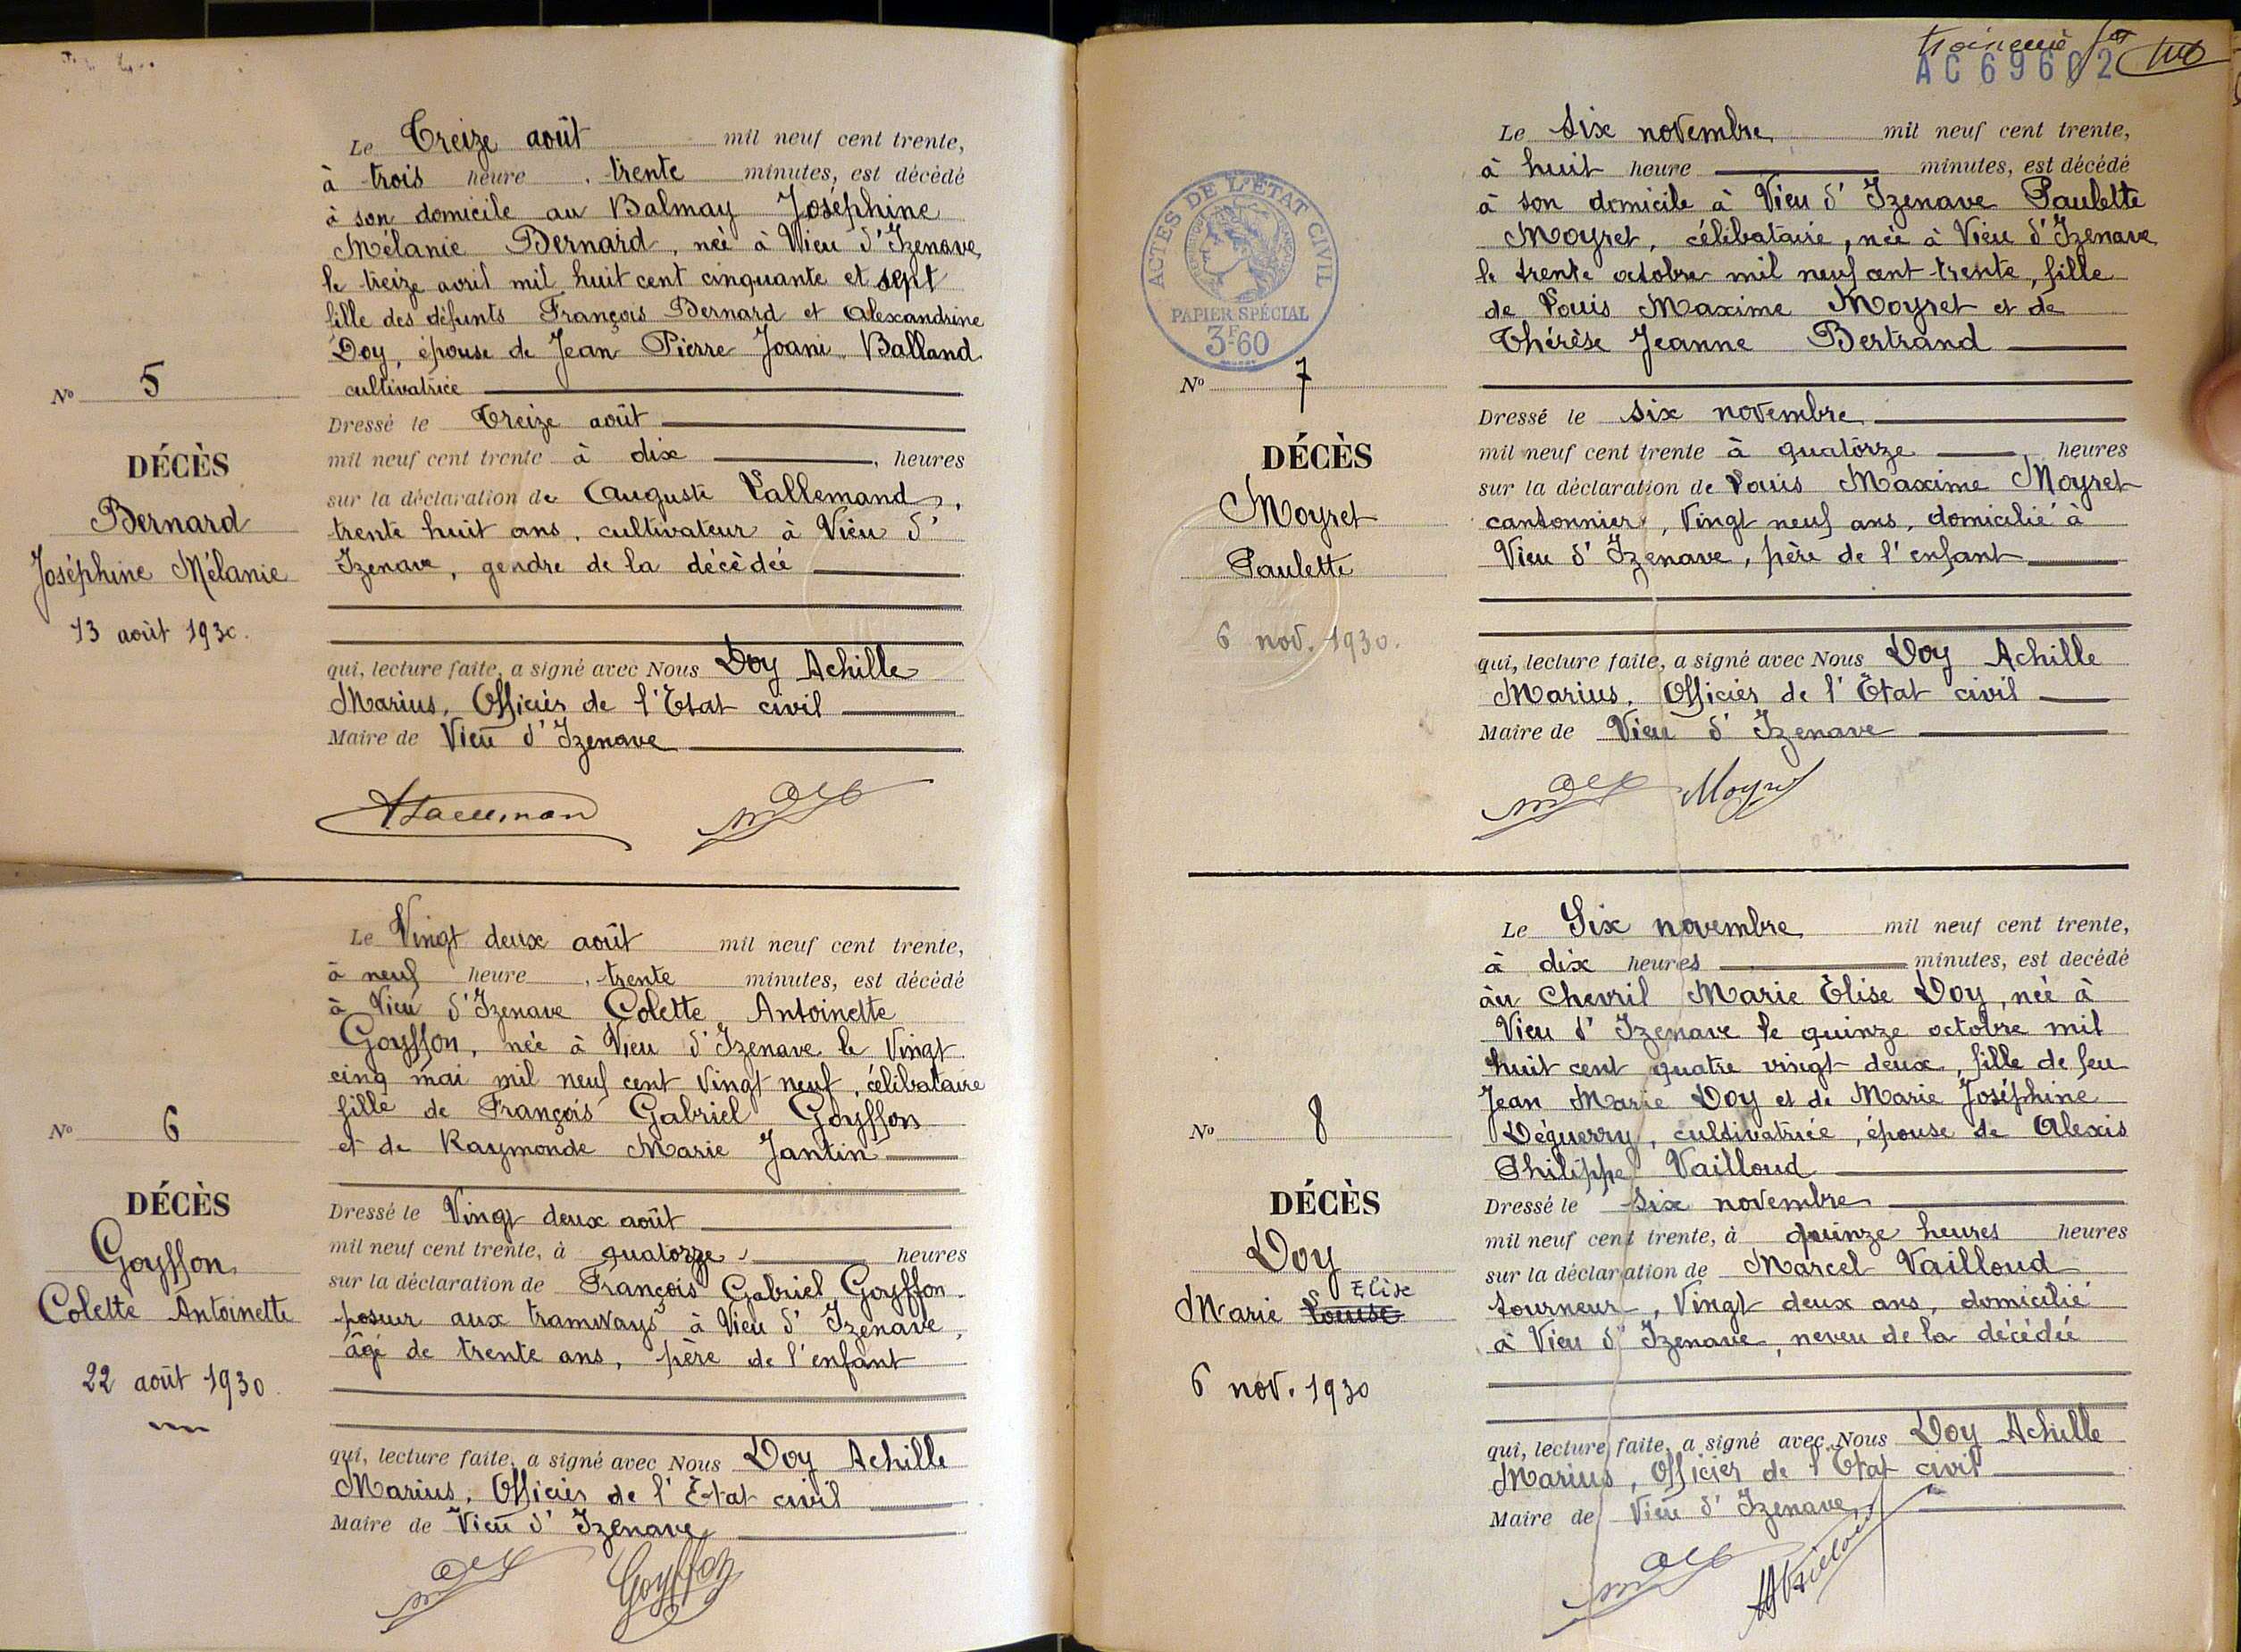 Le Treize août mil neuf cent trente,
à trois heure, trente minutes, est décédé
à son domicile au Balmay Joséphine
Mélanie Bernard, née à Vieu d'Izenave,
le treize avril mil huit cent cinquante et sept
fille des défunts François Bernard et Alexandrine
Doy, épouse de Jean Pierre Joani Balland
cultivatrice
No 5
DÉCÈS
Bernard
Joséphine Mélanie
13 août 1930.
Dressé le Treize août
mil neuf cent trente à dix, heures
sur la déclaration de Auguste Lallemand,
trente huit ans, cultivateur à Vieu d'
Izenave, gendre de la décédée
qui, lecture faite, a signé avec Nous Doy Achille
Marius, Officier de l'Etat civil
Maire de Vieu d'Izenave
Le Vingt deux août mil neuf cent trente,
à neuf heure, trente minutes, est décédé
à Vieu d'Izenave Colette Antoinette
Goyffon, née à Vieu d'Izenave le Vingt
cinq mai mil neuf cent Vingt neuf, célibataire
fille de François Gabriel Goyffon
et de Raymonde Marie Jantin
No 6
DÉCÈS
Goyffon
Colette Antoinette
22 août 1930
Dressé le Vingt deux août
mil neuf cent trente, à quatorze heures
sur la déclaration de François Gabriel Goyffon
poseur aux tramways à Vieu d'Izenave,
âgé de trente ans, père de l'enfant
qui, lecture faite, a signé avec Nous Doy Achille
Marius, Officier de l'Etat civil
Maire de Vieu d'Izenave
Goyffon
AC 69602
ACTES DE L'ÉTAT CIVIL
PAPIER SPÉCIAL
3F60
Le Six novembre mil neuf cent trente,
à huit heure minutes, est décédé
à son domicile à Vieu d'Izenave Paulette
Moyret, célibataire, née à Vieu d'Izenave
le trente octobre mil neuf cent trente, fille
de Louis Maxime Moyret et de
Thérèse Jeanne Bertrand
No 7
DÉCÈS
Moyret
Paulette
6 nov. 1930.
Dressé le six novembre
mil neuf cent trente à quatorze, heures
sur la déclaration de Louis Maxime Moyret
cantonnier, Vingt neuf ans, domicilié à
Vieu d'Izenave, père de l'enfant
qui, lecture faite, a signé avec Nous Doy Achille
Marius, Officier de l'Etat civil
Maire de Vieu d'Izenave
Moyret
Le Six novembre mil neuf cent trente,
à dix heures minutes, est decédé
au Chevril Marie Elise Doy, née à
Vieu d'Izenave le quinze octobre mil
huit cent quatre vingt deux, fille de feu
Jean Marie Doy et de Marie Joséphine
Déguerry, cultivatrice, épouse de Alexis
Philippe Vailloud
No 8
DÉCÈS
Doy
Elise
Marie Louise
6 nov. 1930
Dressé le six novembre
mil neuf cent trente, à quinze heures heures
sur la déclaration de Marcel Vailloud
tourneur, Vingt deux ans, domicilié
à Vieu d'Izenave, neveu de la décédée
qui, lecture faite, a signé avec Nous Doy Achille
Marius, Officier de l'Etat civil
Maire de Vieu d'Izenave